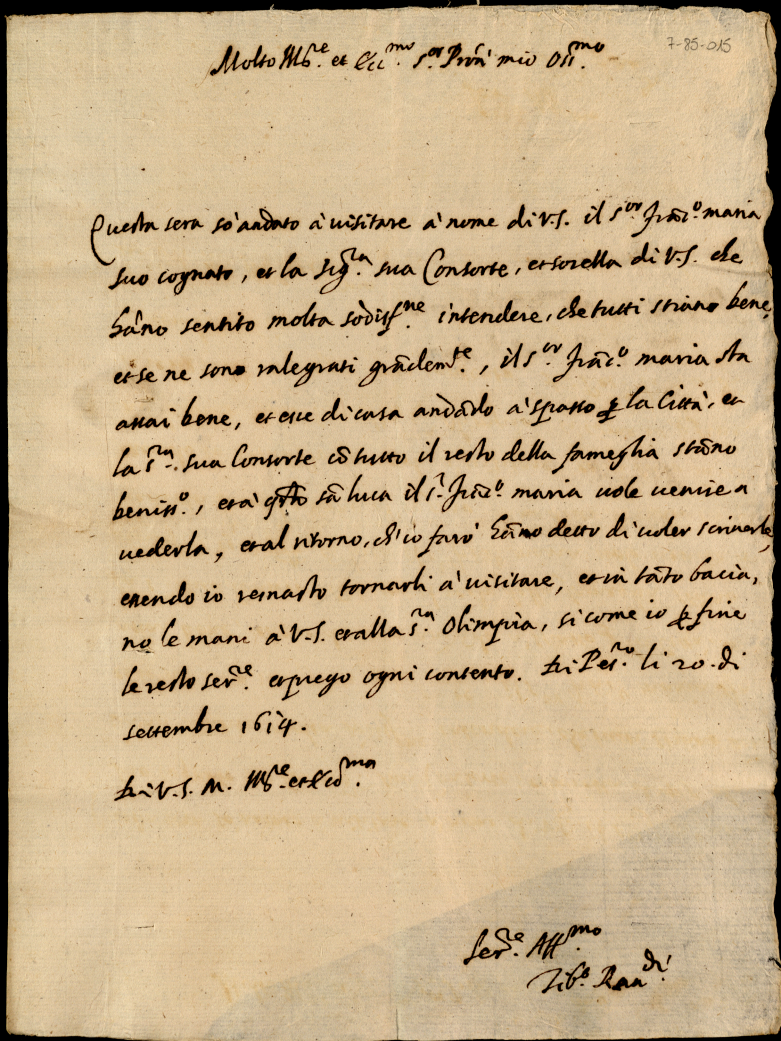 7-85-015
Molto Ill.re et Ecc.mo S.or Prõn mio Oss.mo
Questa sera sõ andato à visitare à nome di V.S. il s.or Frãc.o maria
suo cognato, et la sig.ra sua Consorte, et sorella di V.S. che
hãno sentito molta sodisf.ne intendere, che tutti stiano bene,
et se ne sono ralegrati grãdem.te, il s.or Frãc.o maria sta
assai bene, et esce di casa andãdo à spasso ꝑ la Città, et
la s.ra sua Consorte cõ tutto il resto della fameglia stãno
beniss.o, et à q̃sto sã luca il s.r Frãc.o maria vole venire a
vederla, et al ritorno, ch'io farò hãno detto di voler scriverle,
essendo io remasto tornarli à visitare, et in tãto bacia,
no le mani à V.S. et alla s.ra Olimpia, si come io ꝑ fine
le resto ser.re et prego ogni contento. Di Pes.ro li 20. di
settembre 1614.
Di V.S. M. Ill.re et Ecc.ma
Ser.re Aff.mo
Tib.o